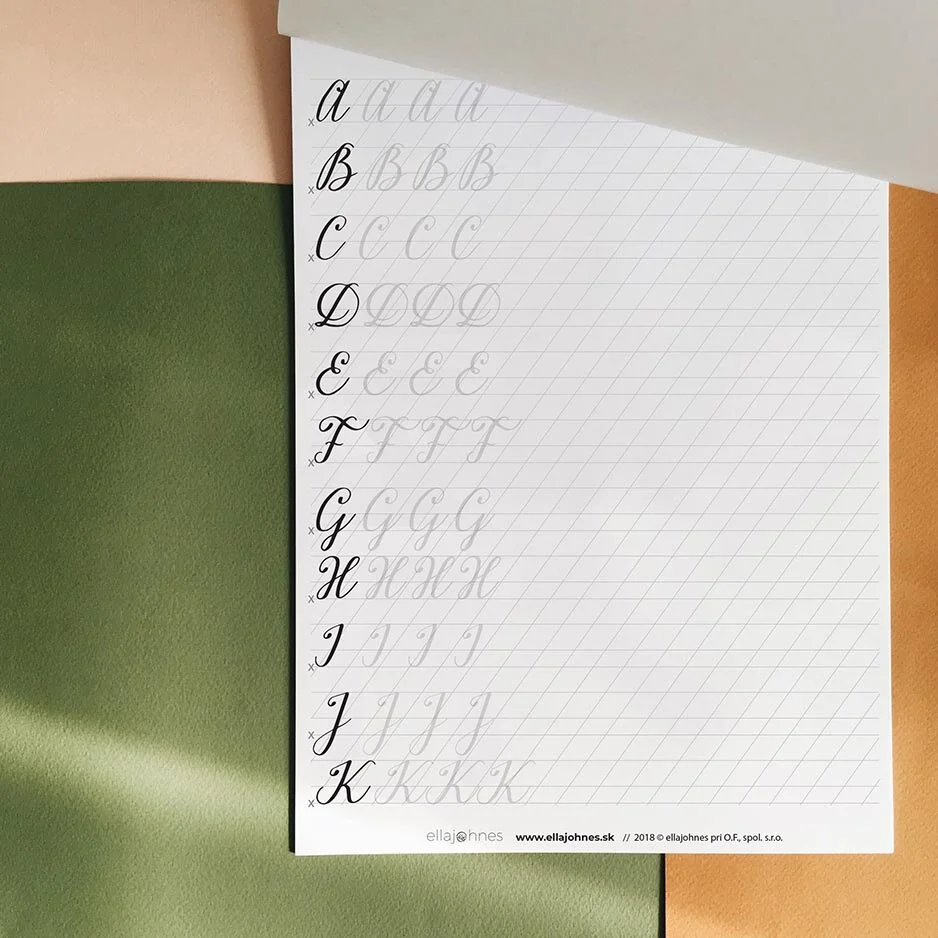 A A A A
x
B B B B
x
C C C C
x
D D D D
x
E E E E
x
F F F F
x
G G G G
x
H H H H
x
I I I I
x
J J J J
x
K K K K
x
ellajohnes www.ellajohnes.sk // 2018 © ellajohnes pri O.F., spol. s.r.o.